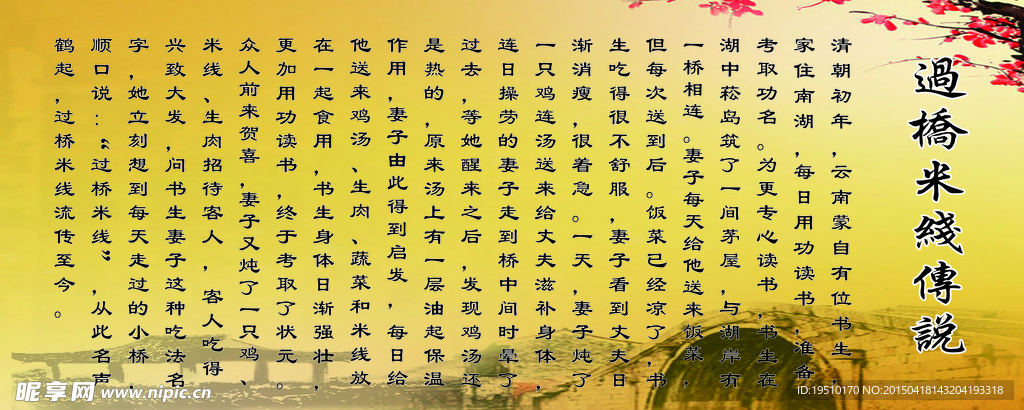 過橋米綫傳説
清朝初年，云南蒙自有位书生，
家住南湖，每日用功读书，准备
考取功名。为更专心读书，书生在
湖中菘岛筑了一间茅屋，与湖岸有
一桥相连。妻子每天给他送来饭菜，
但每次送到后。饭菜已经凉了，书
生吃得很不舒服，妻子看到丈夫日
渐消瘦，很着急。一天，妻子炖了
一只鸡连汤送来给丈夫滋补身体，
连日操劳的妻子走到桥中间时晕了
过去，等她醒来之后，发现鸡汤还
是热的，原来汤上有一层油起保温
作用，妻子由此得到启发，每日给
他送来鸡汤、生肉、蔬菜和米线放
在一起食用，书生身体日渐强壮，
更加用功读书，终于考取了状元。
众人前来贺喜，妻子又炖了一只鸡、
米线、生肉招待客人，客人吃得
兴致大发，问书生妻子这种吃法名
字，她立刻想到每天走过的小桥，
顺口说：“过桥米线”，从此名声
鹤起，过桥米线流传至今。
昵享网 www.nipic.cn
ID:19510170 NO:20150418143204193318